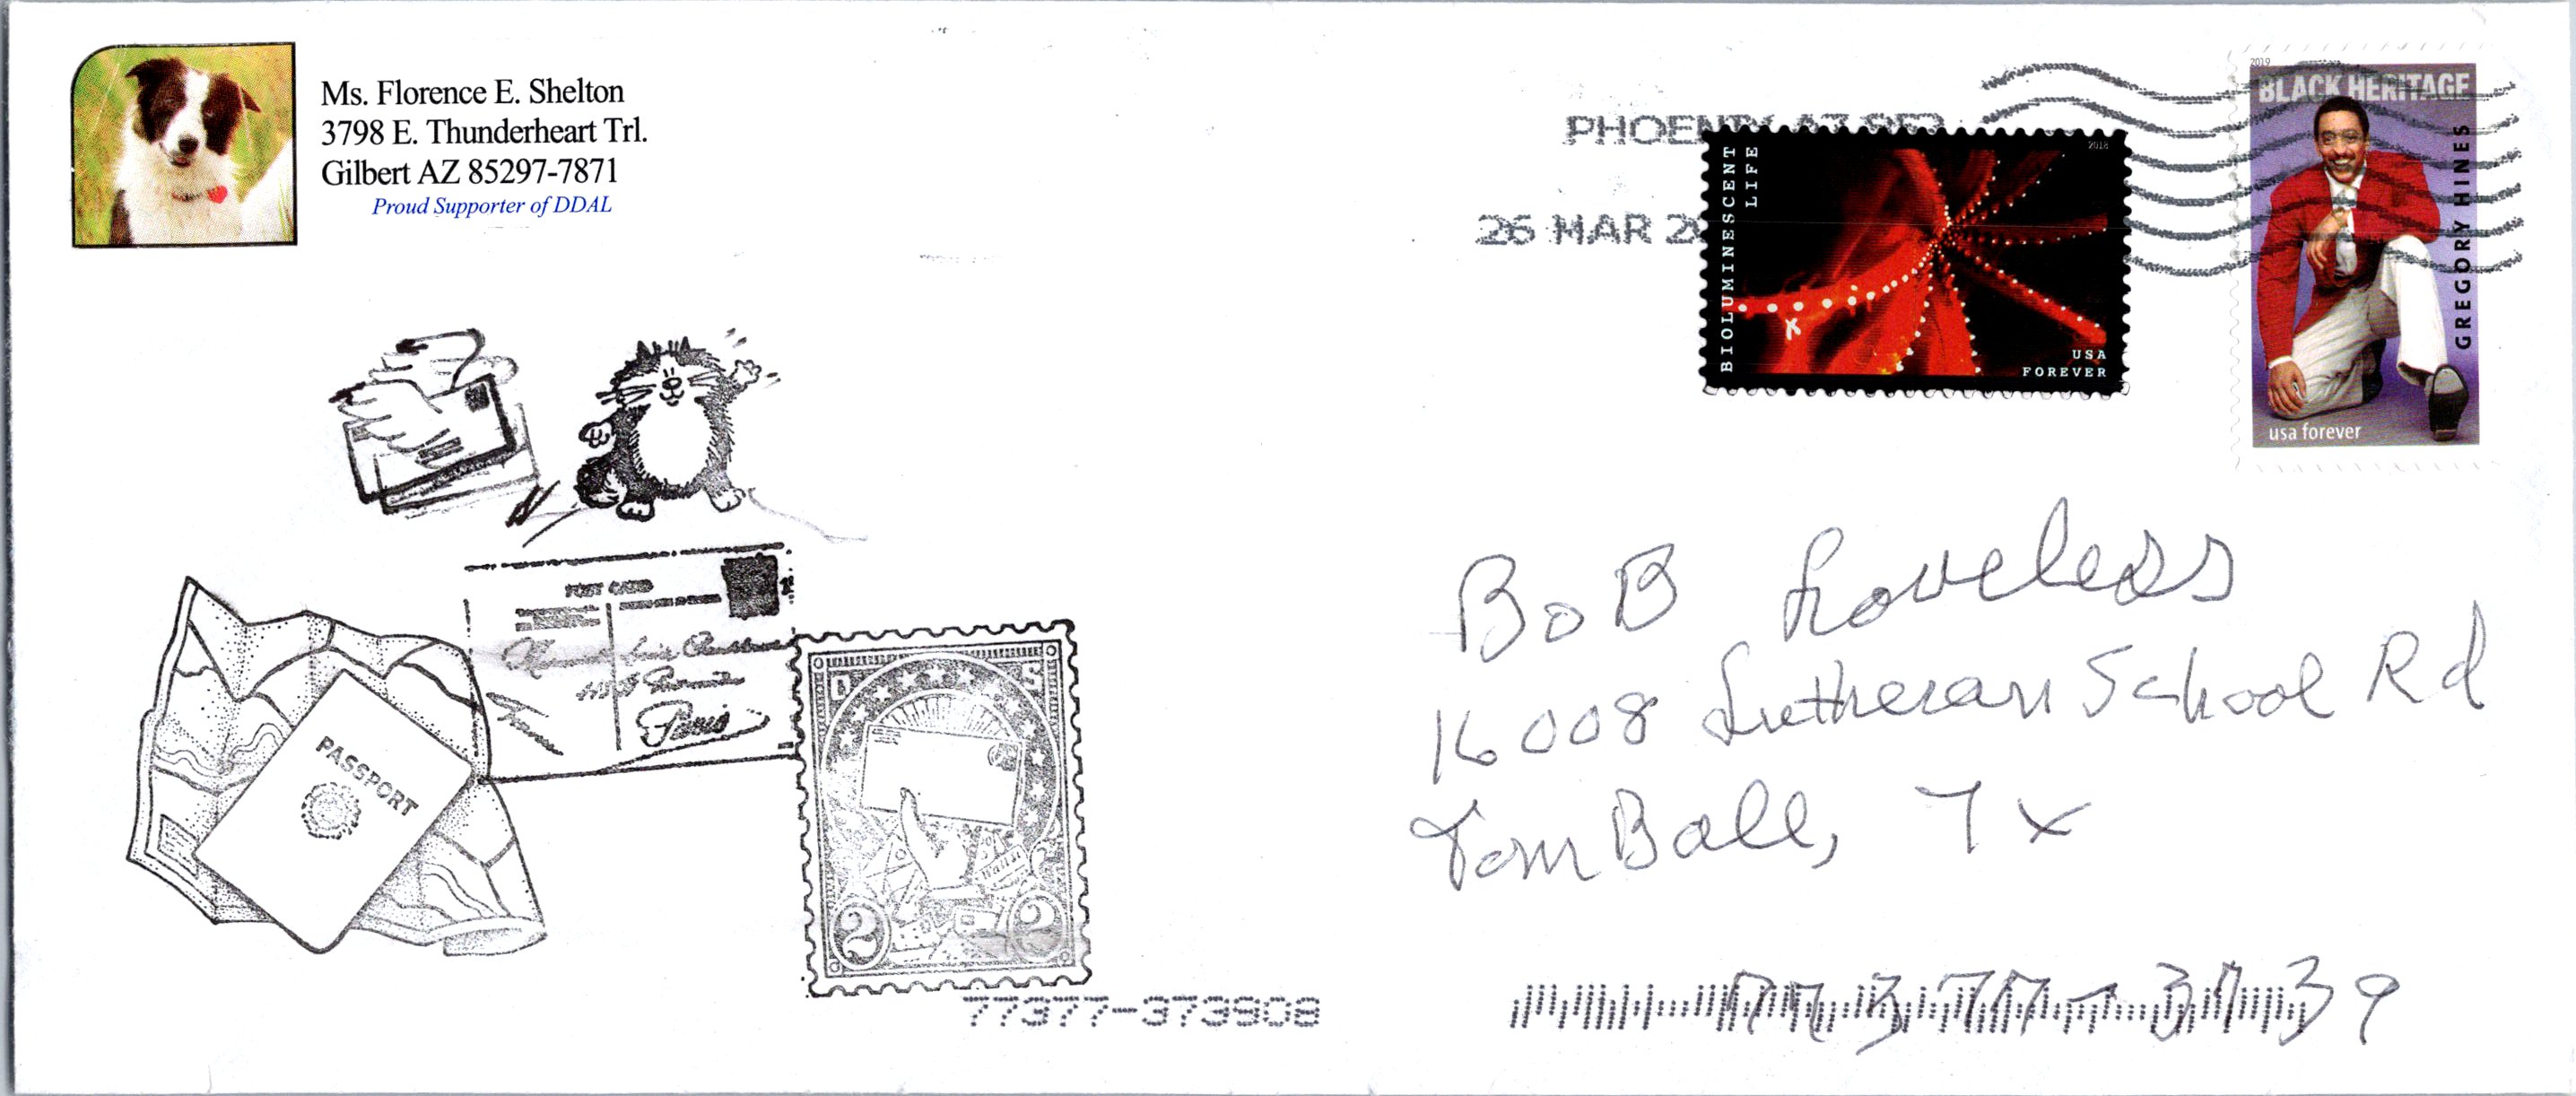 Ms. Florence E. Shelton
3798 E. Thunderheart Trl.
Gilbert AZ 85297-7871
Proud Supporter of DDAL
PHOENIX AZ 852
26 MAR 2
BIOLUMINESCENT
LIFE
2018
USA
FOREVER
2019
BLACK HERITAGE
GREGORY HINES
usa forever
POST CARD
Paris
PASSPORT
U S
2 2
BoB Loveless
16008 Lutheran School Rd
TomBall, Tx
77377-3739
77377-373908